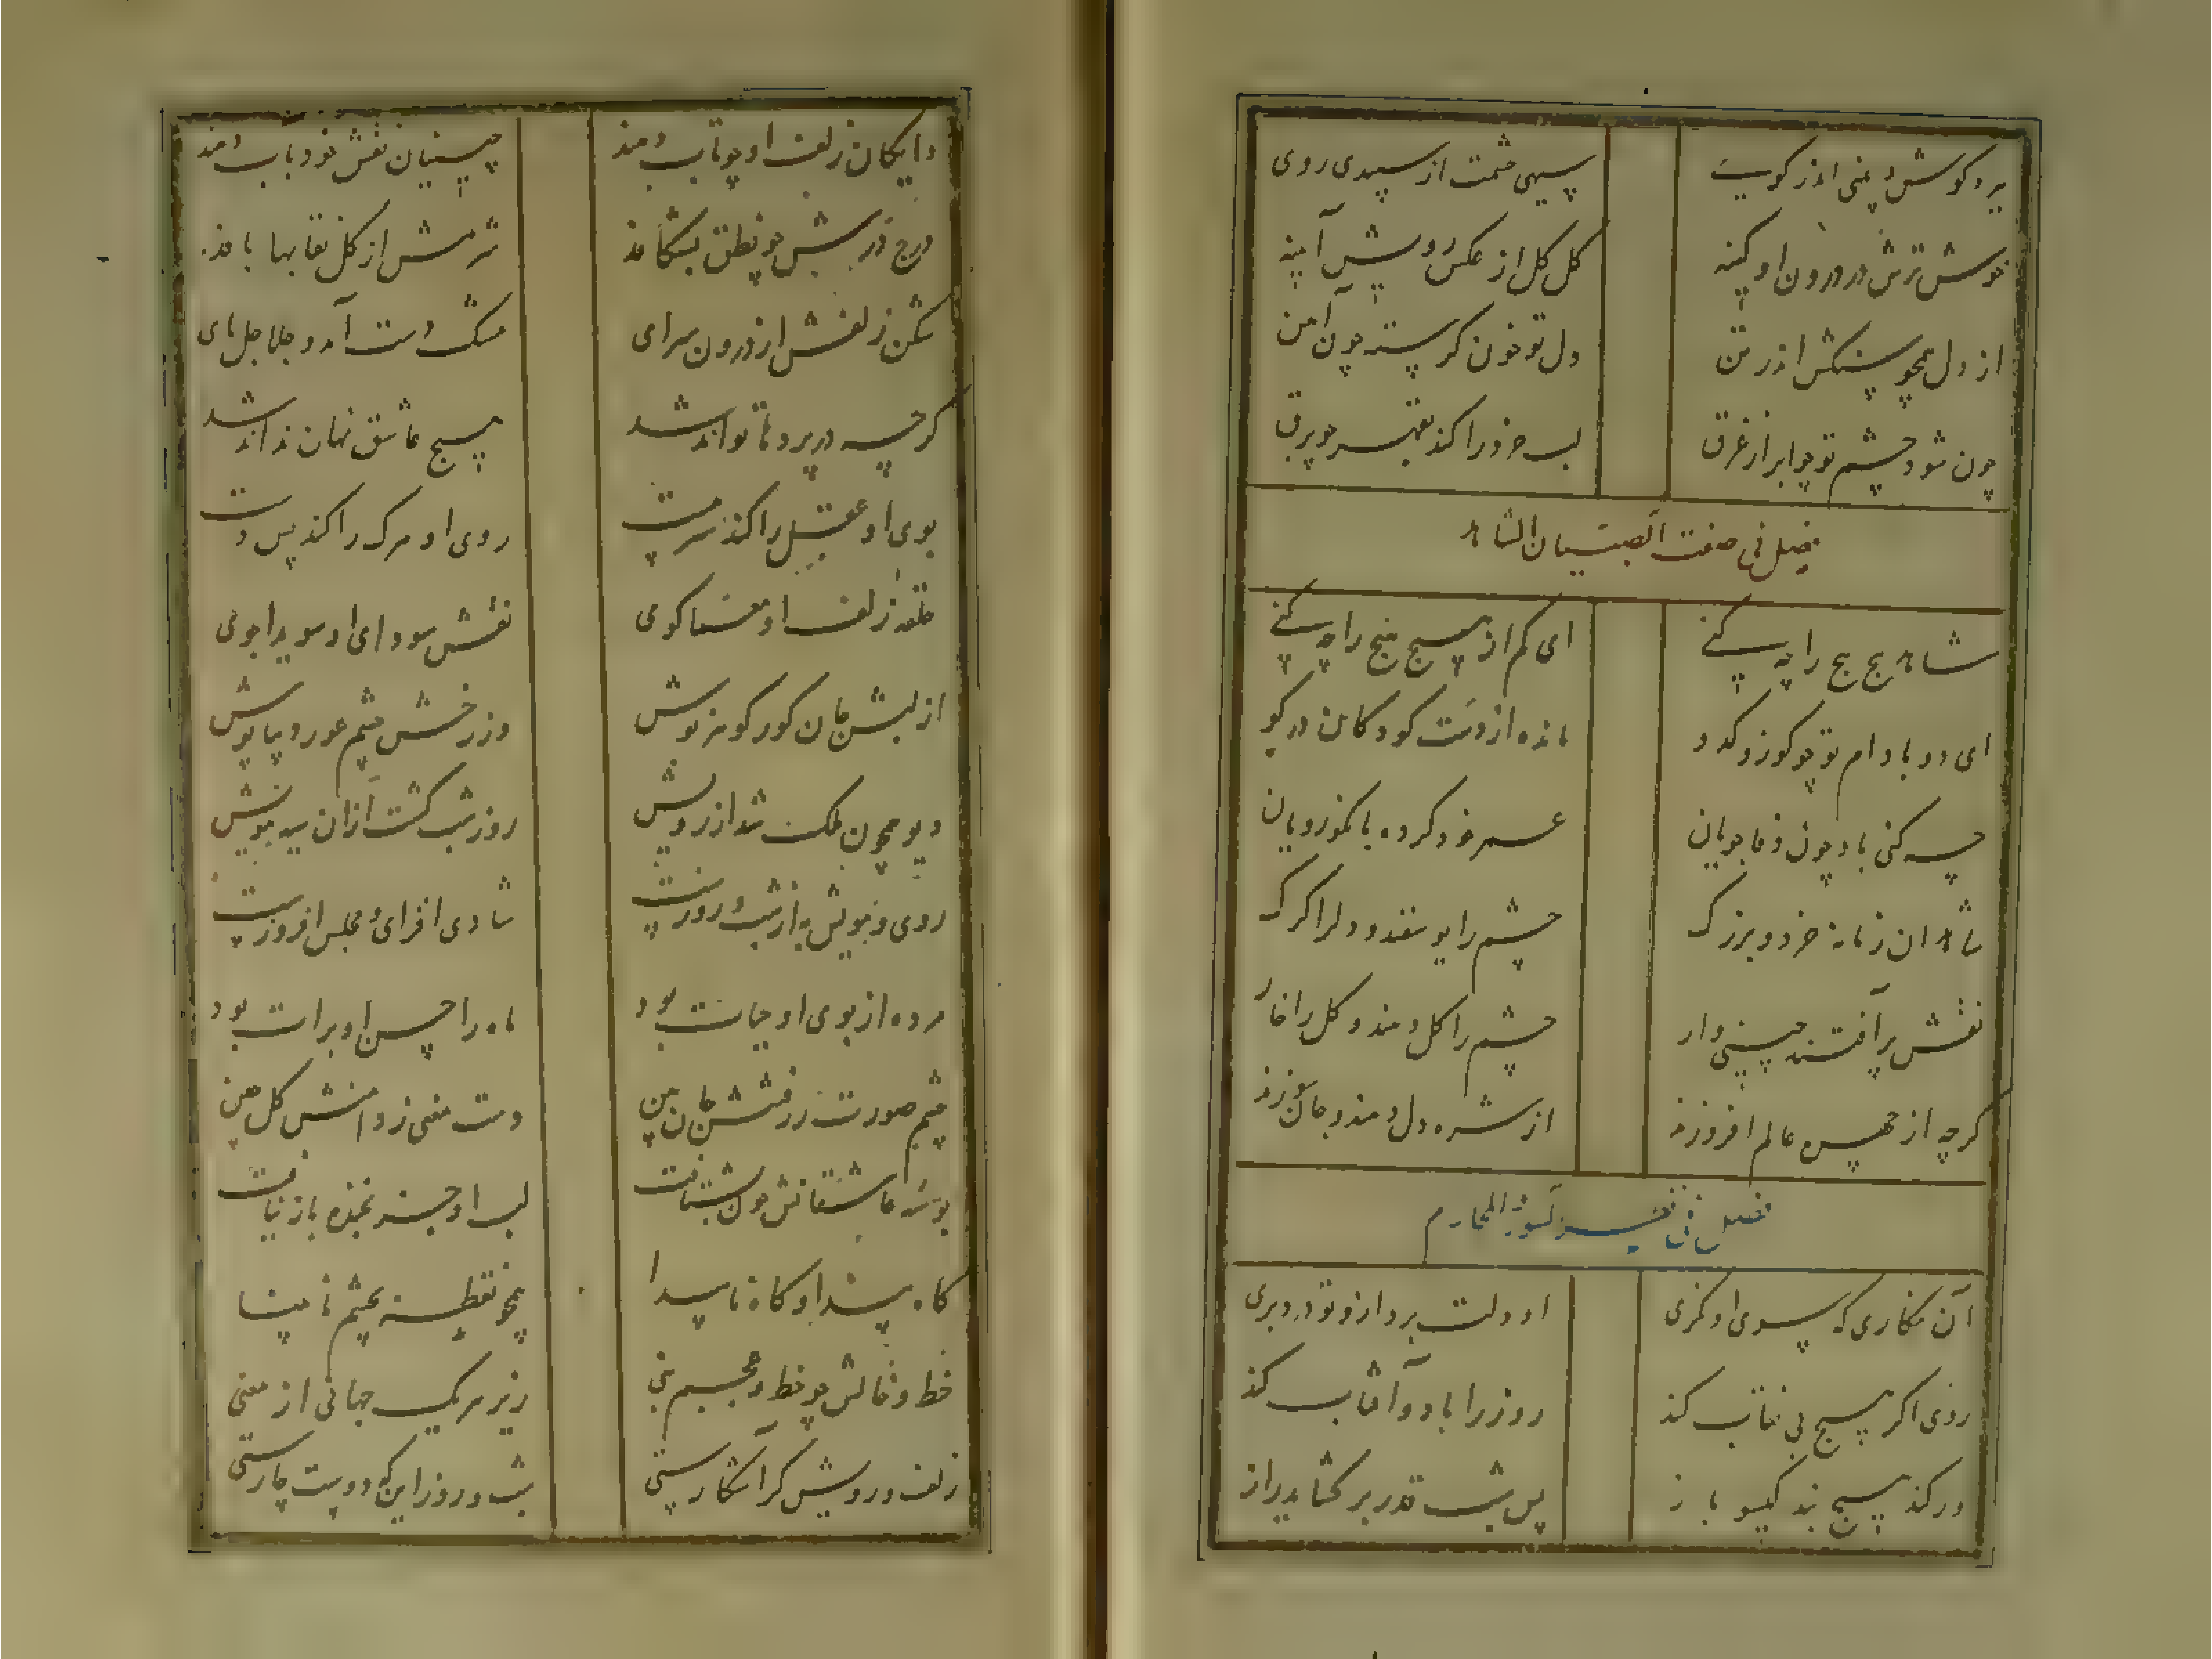 سیهی خشمت از سپیدی روی
خوش ترش در درون او کینه گل گل از عکس روش آینه
از دل همچو سنگش اندر تن دل تو خون گرسته چون آهن
چون شود چشم تو چو ابر از غرق لب خود را کند بقهر چو برق
فصل فی صفت الصبیان الشاهد
شاهد هیچ هیچ را چه کنی ای کم از هیچ هیچ را چه کنی
ای دو بادام تو چو کوز و کدو مانده از دست کودکان در کو
چه کنی با دو چون وفا جویان عمر خود کرده با نکورویان
شاهدان زمانه خرد و بزرگ چشم را یوسفند و دل را گرگ
نقش پر آفتند چینی وار چشم را گل دهند و گل را خار
گرچه از چهره عالم افروزند از شره دل دهند و جان سوزند
فصل فی
آن نگاری که سوی او نگری او دلت برد ازو تو درد بری
روی اگر هیچ بی نقاب کند روز را با دو آفتاب کند
ور کند هیچ بند گیسو باز پس شب قدر بر گشاید راز
دایگان زلف او چو تاب دهند چینیان نقش خود بآب دهند
درج در بسش چو نطق بشکافد شرمش از گل نقابها بافد
شکن زلفش از درون سرای مشک دست آمد و جلاجل پای
گرچه در پرده تا تواند شد هیچ عاشق نهان نداند شد
بوی او عقل را کند سرمست روی او مرگ را کند پس دست
حلقه زلف او معما گوی نقش سودای او سویدا جوی
از لبش جان کور گوهر نوش وز رخش چشم عور دیبا پوش
دیو همچون ملک شد از رویش روز شب گشت ازان سیه مویش
روی و مویش به از شب و روزست شادی افزای و مجلس افروزست
مرده از بوی او حیات بود ماه را حسن او برات بود
چشم صورت ز رفتنش جان بین دست معنی ز دامنش گل چین
بوسه عاشقانش چون بشتافت لب او جز بخنده باز نیافت
گاه پیدا و گاه ناپیدا همچو نقطه بچشم نابینا
خط و خالش چو خط و عجم نبی زیر هر یک جهانی از معنی
زلف و رویش گر آشکارستی شب و روز این که دوست چارستی